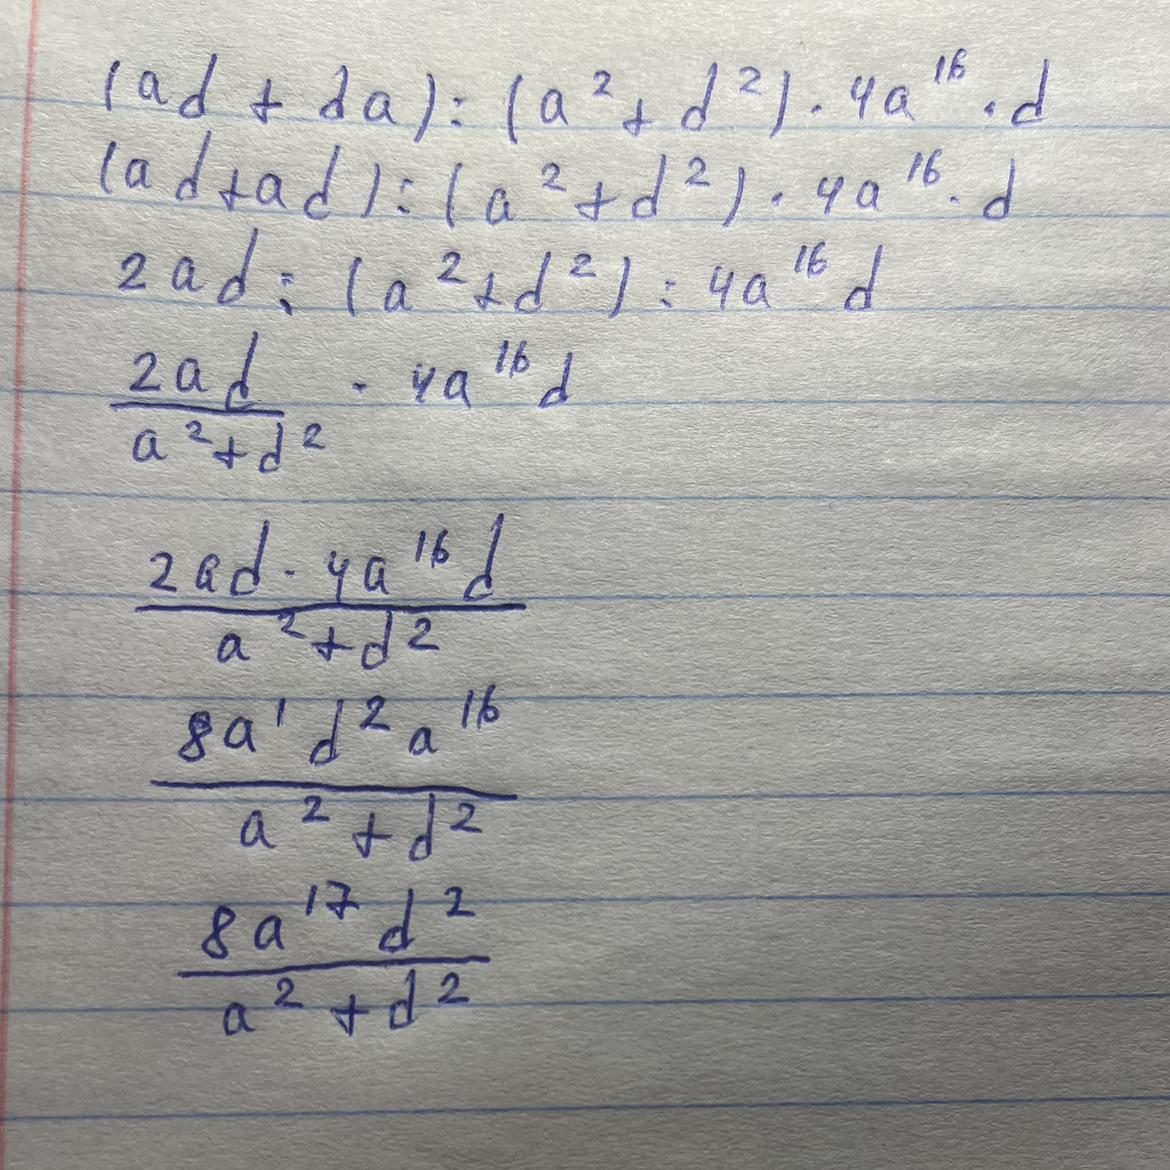 (ad + da) : (a² + d²) · 4a¹⁶ · d
(ad + ad) : (a² + d²) · 4a¹⁶ · d
2ad : (a² + d²) : 4a¹⁶ d
2ad / a² + d² · 4a¹⁶ d
2ad · 4a¹⁶ d / a² + d²
8a¹ d² a¹⁶ / a² + d²
8a¹⁷ d² / a² + d²